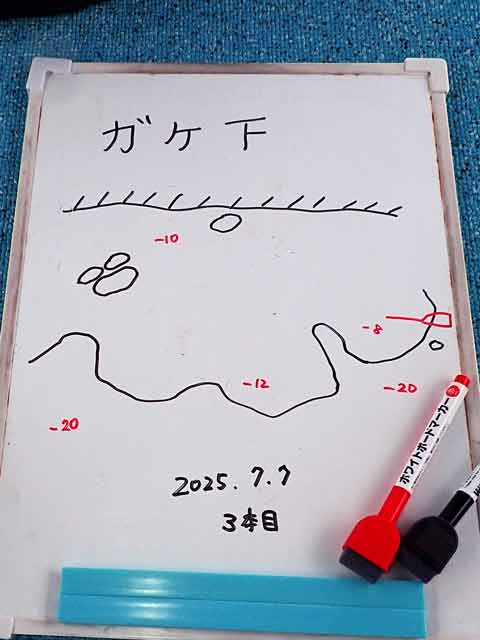 ガケ下
-10
-8
-12
-20
-20
2025.7.7
3本目
ホワイトボードマーカー